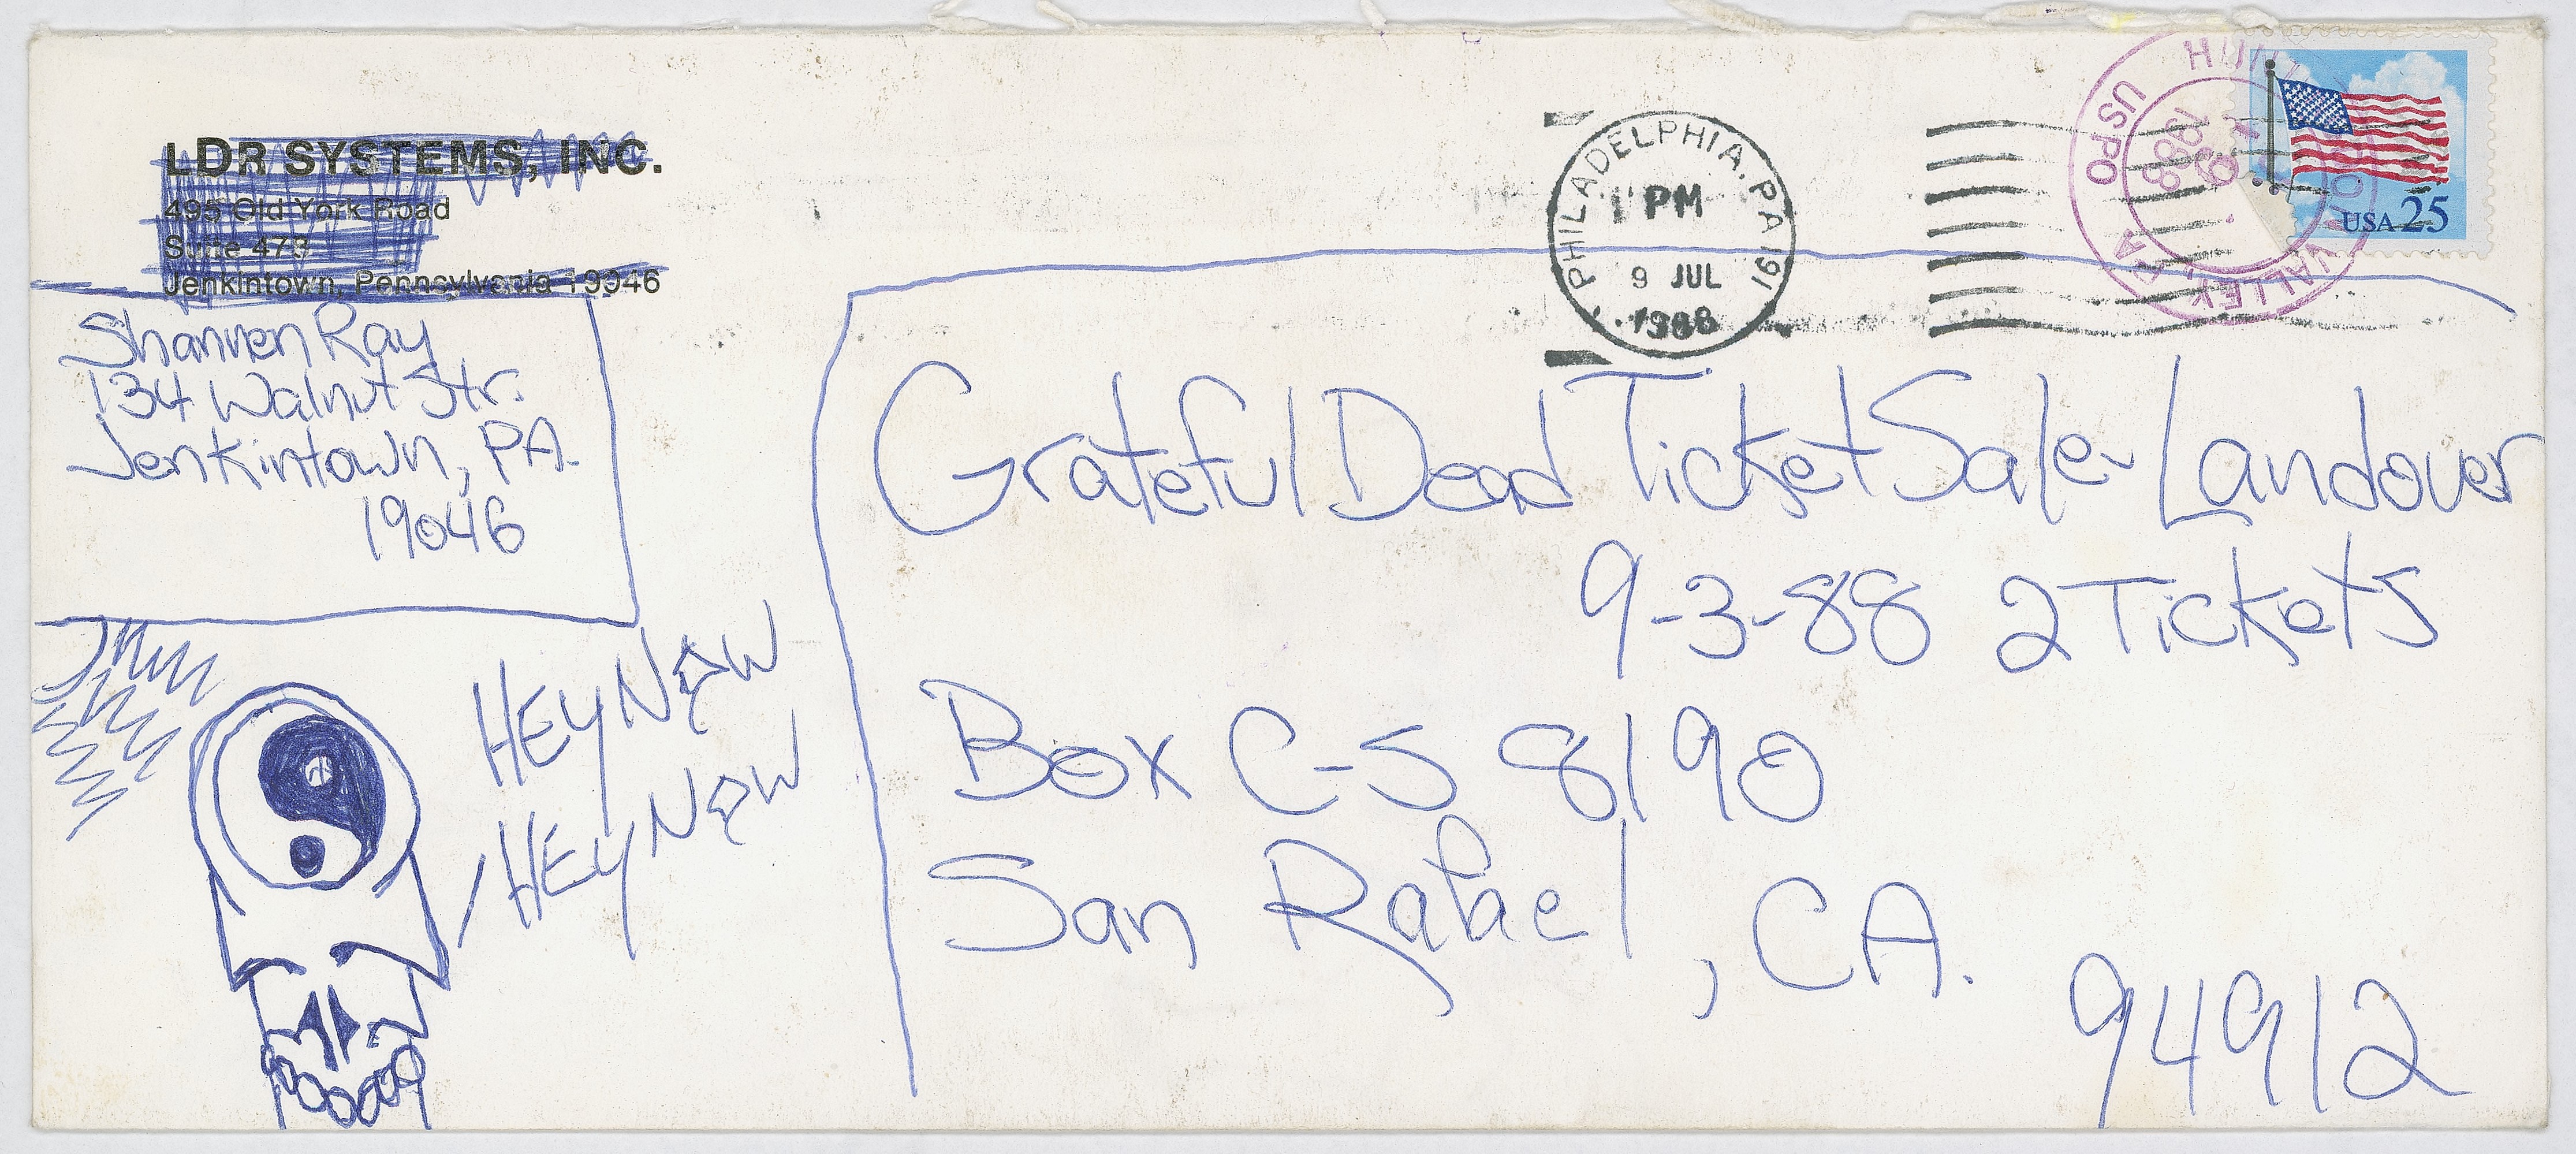 LDR SYSTEMS, INC.
495 Old York Road
Suite 473
Jenkintown, Pennsylvania 19046
Shannen Ray
134 Walnut Str.
Jenkintown, PA.
19046
PHILADELPHIA, PA 191
1 PM
9 JUL
1988
USPO
1988
VALLEY PA
USA 25
Grateful Dead Ticket Sale - Landover
9-3-88 2 Tickets
Box C-S 8190
San Rafael, CA.
94912
HEY NOW
HEY NOW